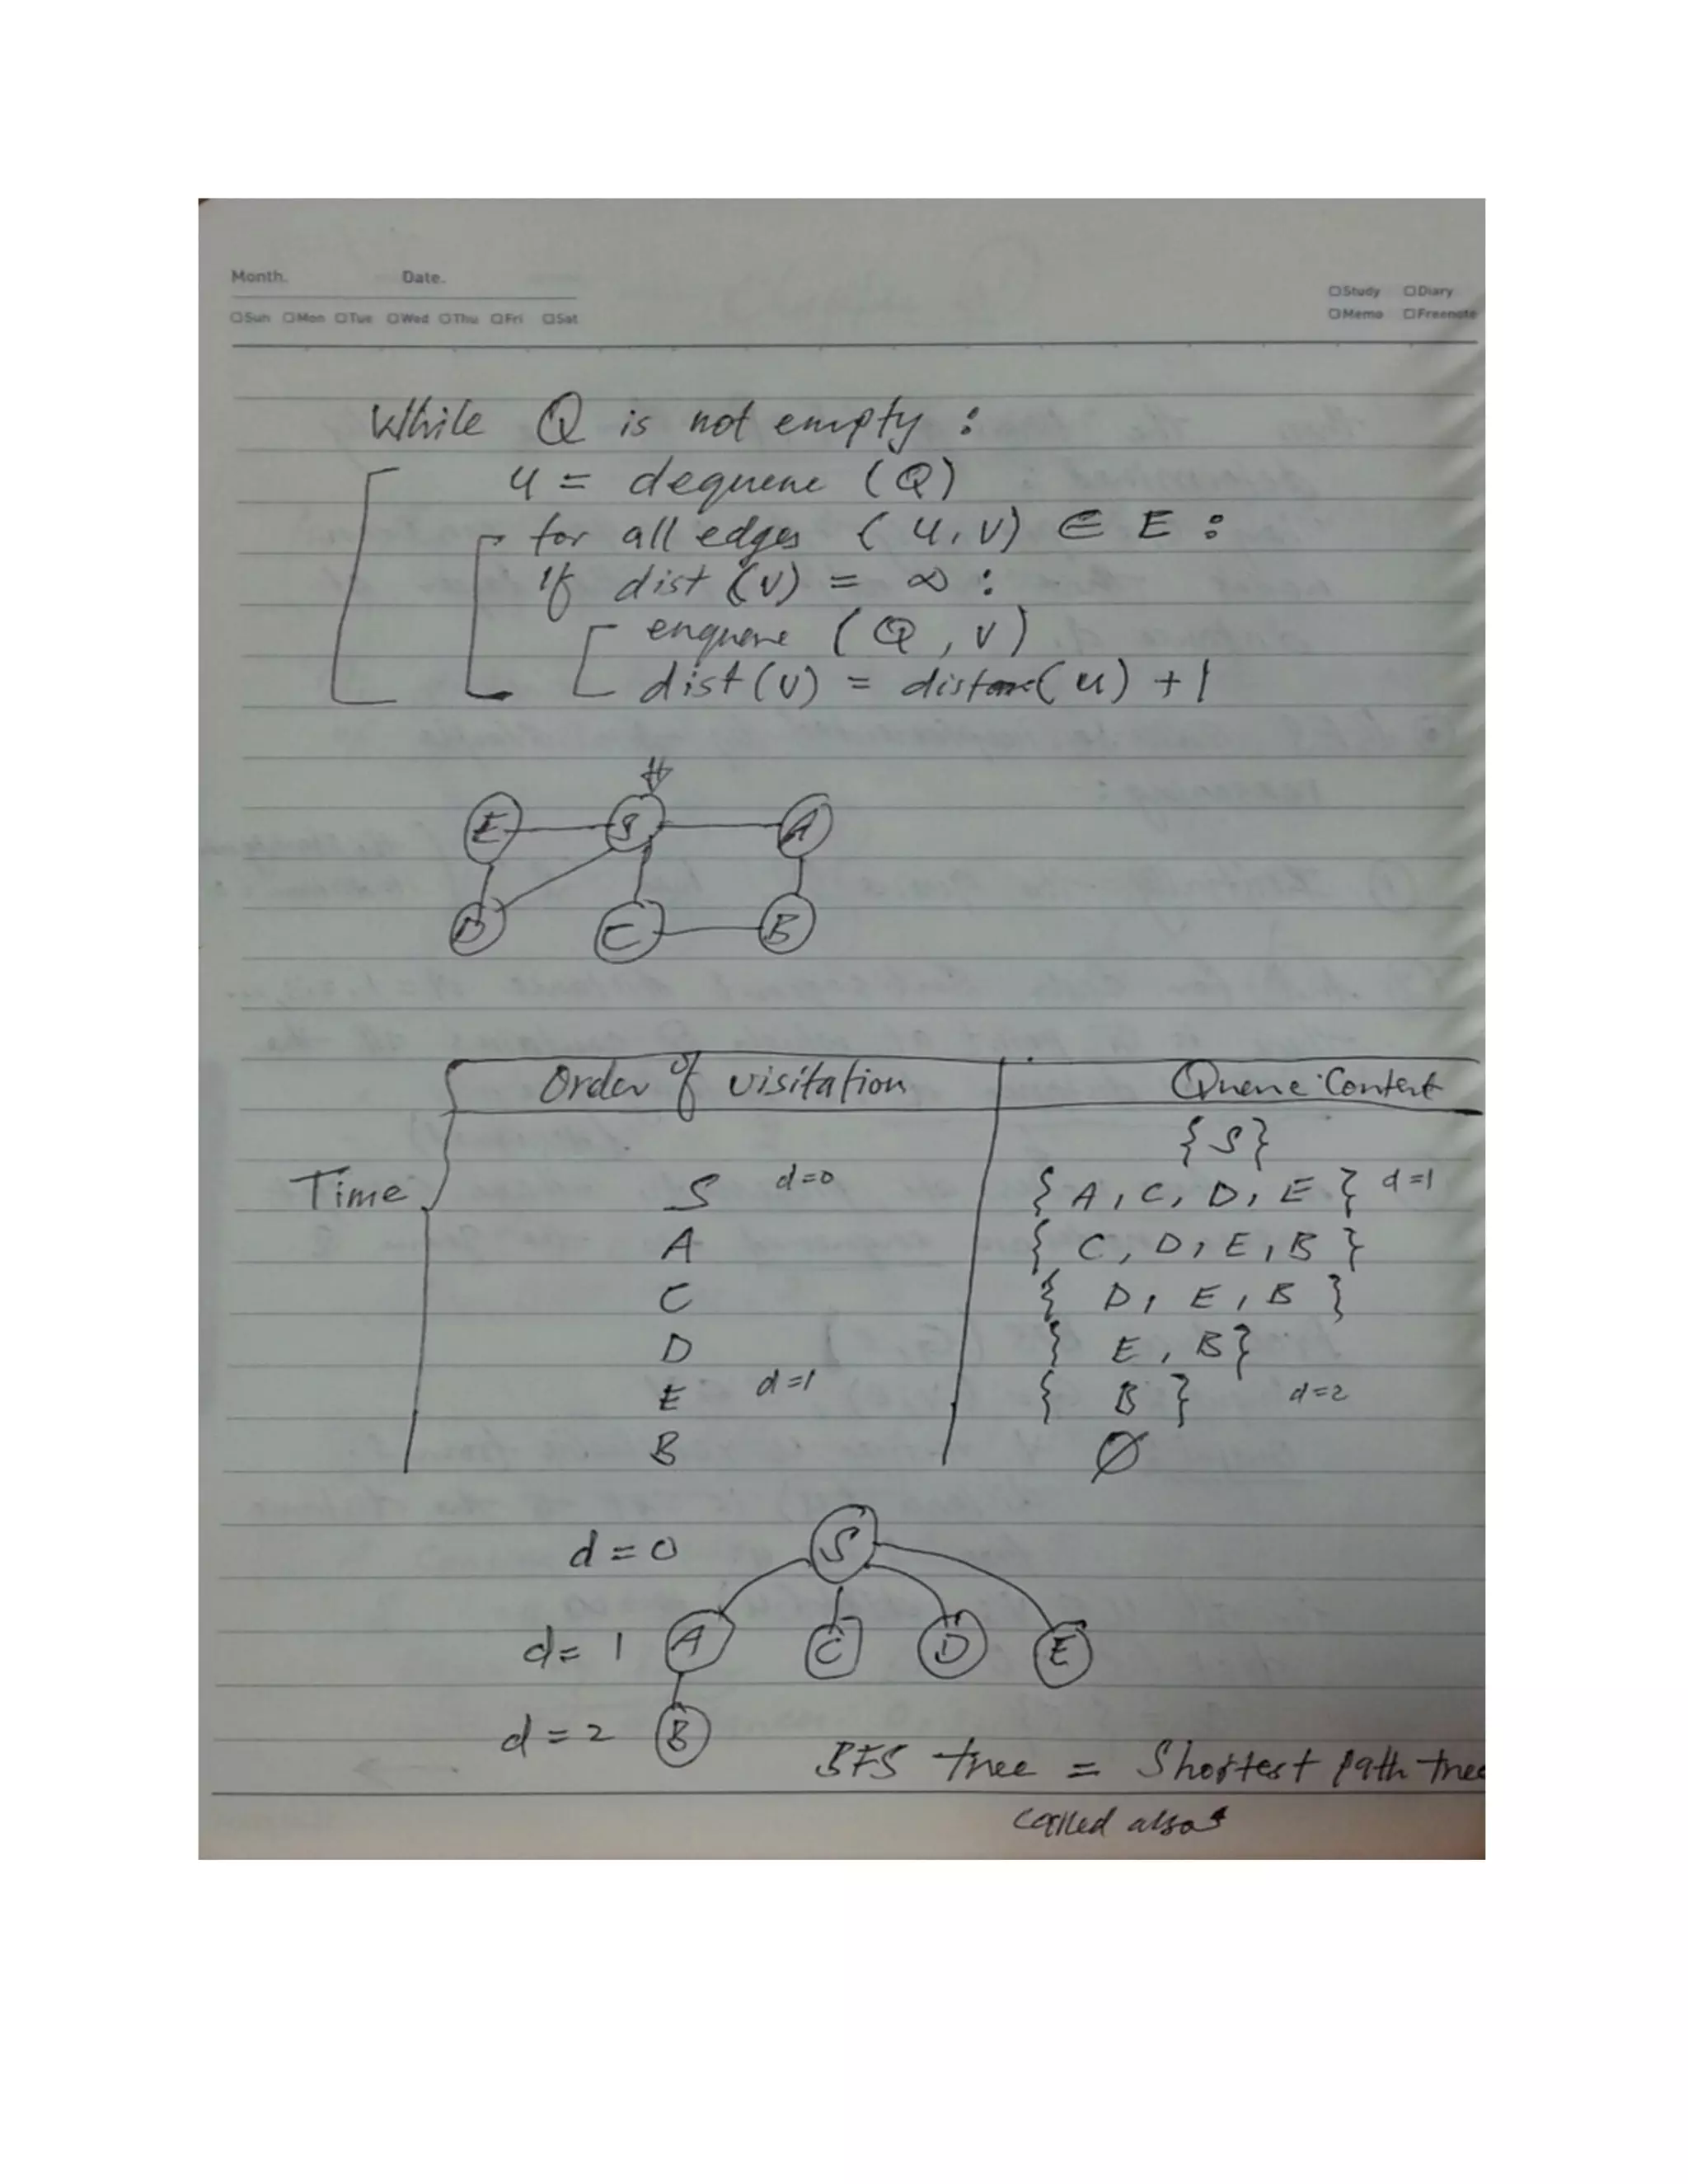 Month. Date.
□Sun □Mon □Tue □Wed □Thu □Fri □Sat
□Study □Diary
□Memo □Freenote
While Q is not empty :
u = dequeue (Q)
for all edges (u, v) ∈ E :
if dist (v) = ∞ :
enqueue (Q, v)
dist(v) = distance(u) + 1
E S A
D C B
Order of visitation Queue Content
{S}
Time S d=0 {A, C, D, E} d=1
A {C, D, E, B}
C {D, E, B}
D {E, B}
E d=1 {B} d=2
B ∅
d = 0 S
d = 1 A C D E
d = 2 B
BFS tree = Shortest path tree
called also